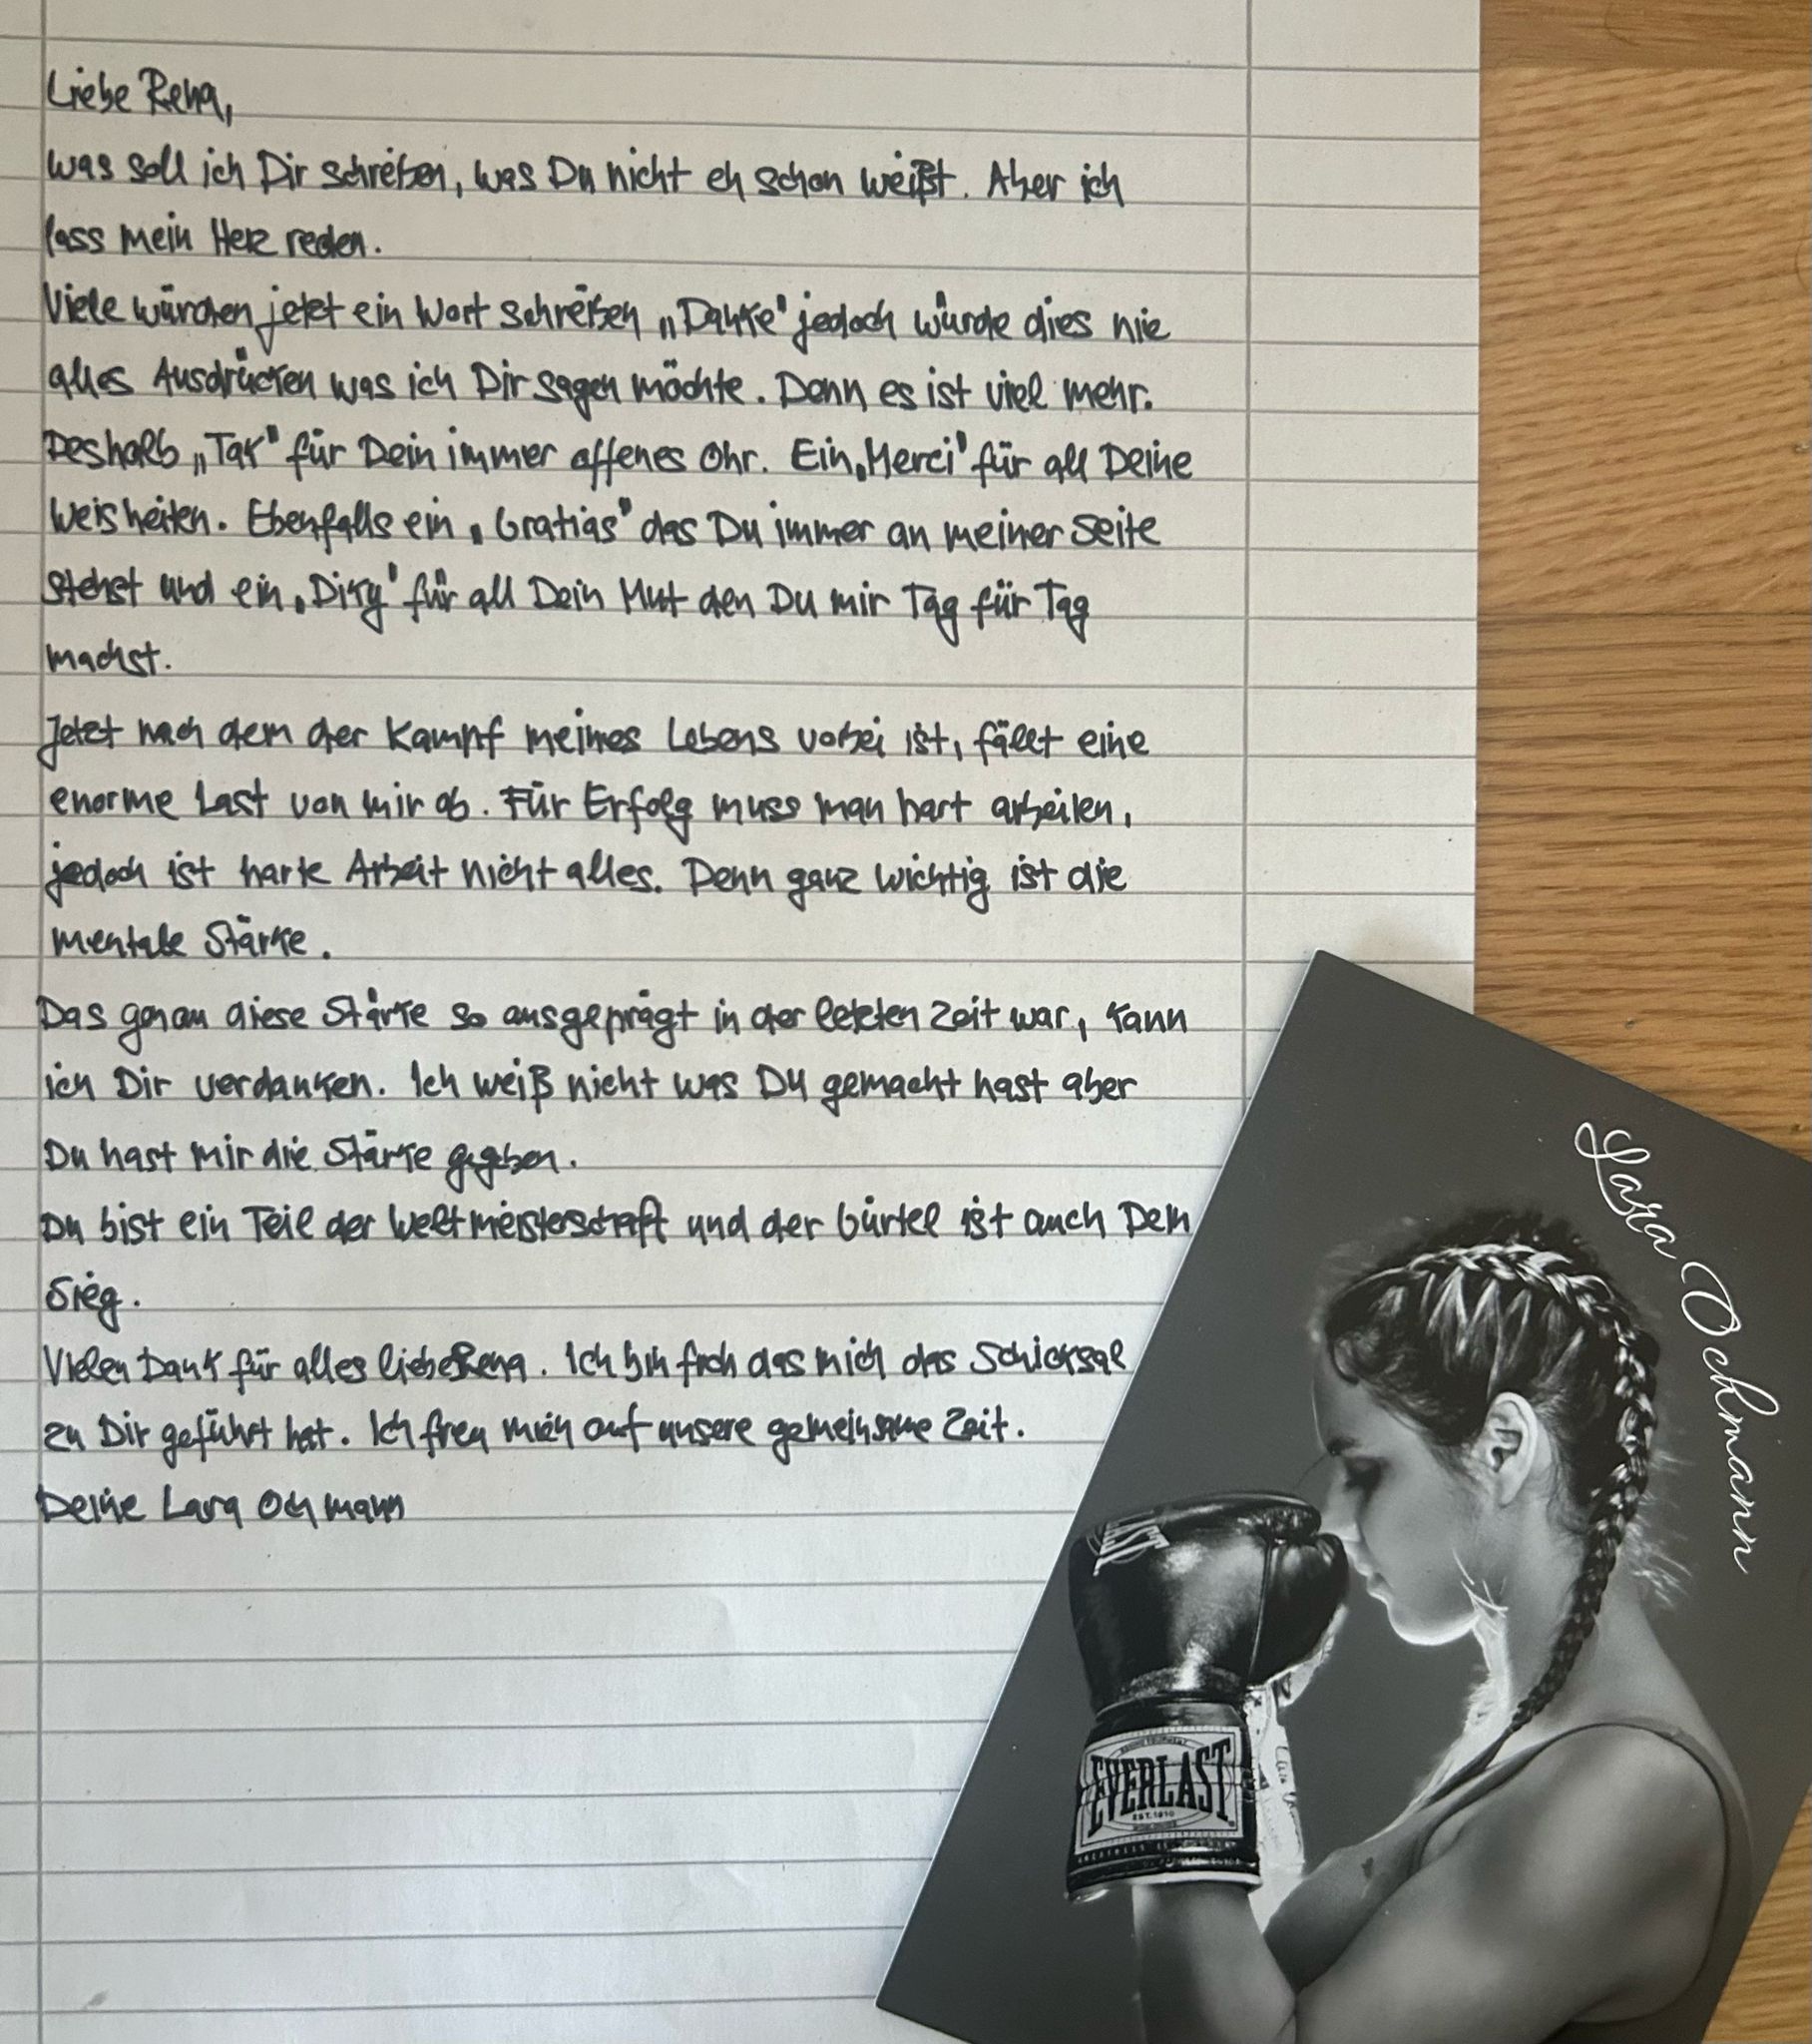 Liebe Rena,
was soll ich Dir schreiben, was Du nicht eh schon weißt. Aber ich
lass mein Herz reden.
Viele würden jetzt ein Wort schreiben „Danke" jedoch würde dies nie
alles Ausdrücken was ich Dir sagen möchte. Denn es ist viel mehr.
Deshalb „Tak" für Dein immer offenes Ohr. Ein „Merci" für all Deine
Weisheiten. Ebenfalls ein „Gratias" das Du immer an meiner Seite
stehst und ein „Diky" für all Dein Mut den Du mir Tag für Tag
machst.
Jetzt nach dem der Kampf meines Lebens vorbei ist, fällt eine
enorme Last von mir ab. Für Erfolg muss man hart arbeiten,
jedoch ist harte Arbeit nicht alles. Denn ganz wichtig ist die
mentale Stärke.
Das genau diese Stärke so ausgeprägt in der letzten Zeit war, kann
ich Dir verdanken. Ich weiß nicht was Du gemacht hast aber
Du hast mir die Stärke gegeben.
Du bist ein Teil der Weltmeisterschaft und der Gürtel ist auch Dein
Sieg.
Vielen Dank für alles liebe Rena. Ich bin froh das mich das Schicksal
zu Dir geführt hat. Ich freu mich auf unsere gemeinsame Zeit.
Deine Lara Ochmann
Lara Ochmann
EVERLAST
EST. 1910